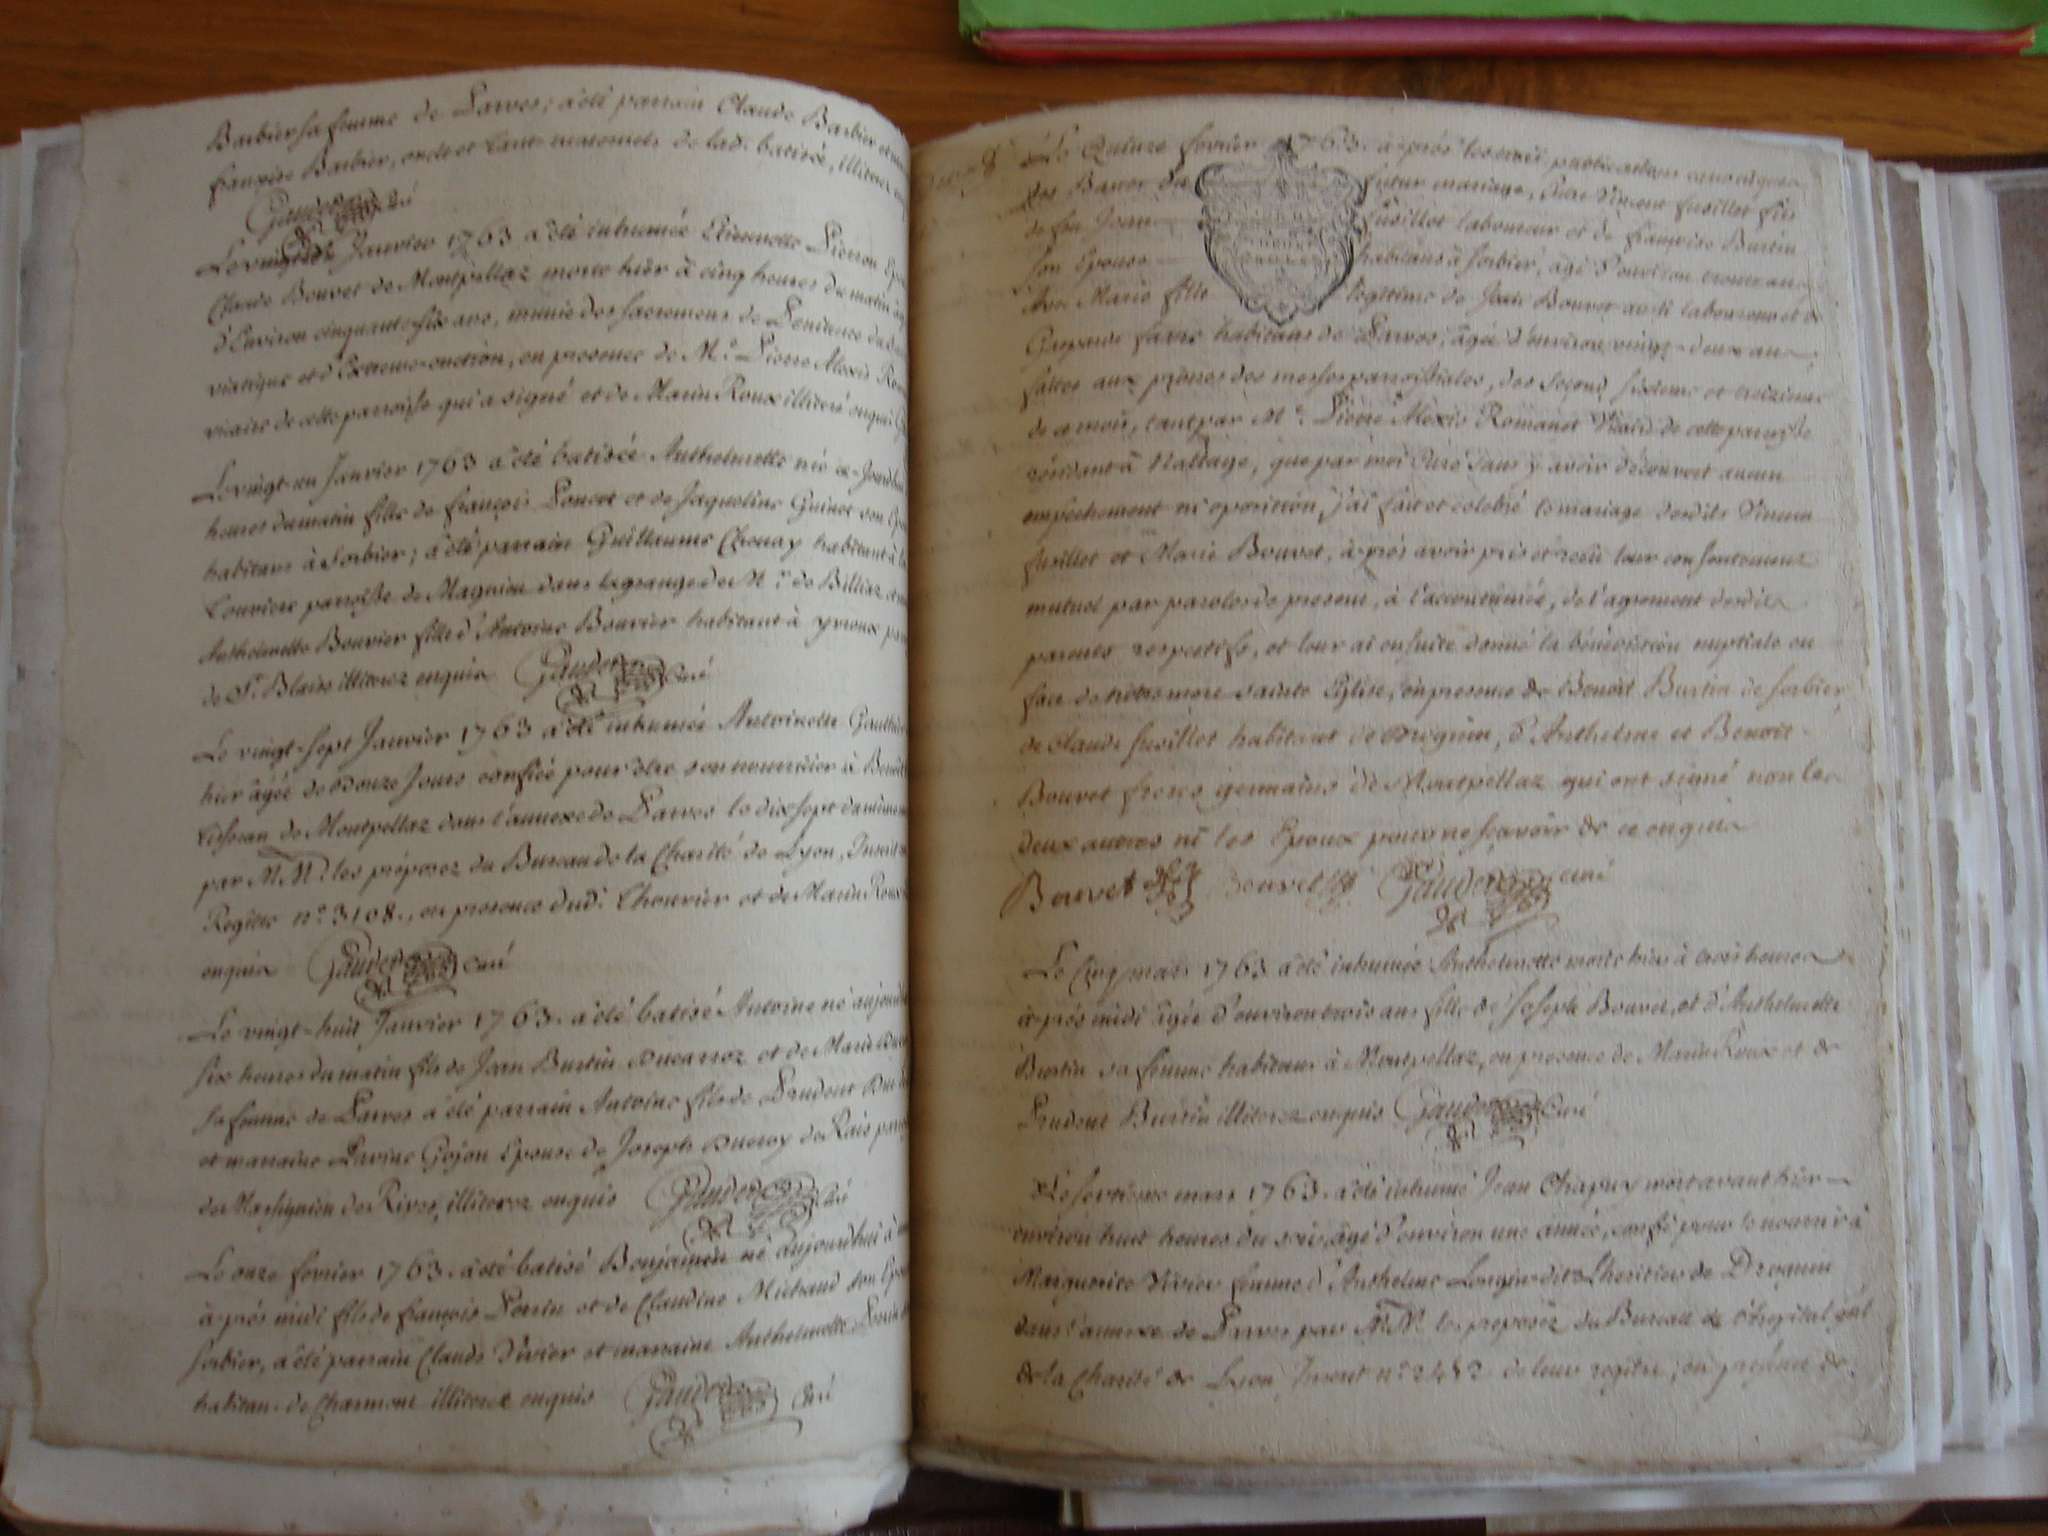 Barbier sa femme de Parves; a été parrain Claude Barbier et
françoise Barbier, oncle et tante maternels de lad. batisée, illiterez
Gaudet Curé
Le vingt Janvier 1763 a été inhumée Etiennette Pierron
Claude Bouvet de Montpellaz morte hier à cinq heures du matin
d'Environ cinquante six ans, munie des sacremens de Penitence du
viatique et d'Extreme-onction, en presence de Mre. Pierre Alexis
vicaire de cette parroisse qui a signé et de Marin Roux illiteré enquis
Le vingt-un Janvier 1763 a été batisée Anthelmette née
heures du matin fille de françois Poncet et de Jaqueline Guinet son
habitans à Sorbier; a été parrain Guillaume habitant à
parroisse de Magnieu dans la grange de Mr. de Billiaz
Anthelmette Bouvier fille d'Antoine Bouvier habitant à
de St. Blaise illiterez enquis Gaudet Curé
Le vingt-sept Janvier 1763 a été inhumée Antoinette
hier âgée de Douze Jours confiée pour être son nourricier à
de Montpellaz dans l'annexe de Parves le dix sept du
par MM. les préposez du Bureau de la Charité de Lyon, Inscrit
Registre n°. 3108., en presence dud. Chouvier et de Marin Roux
enquis Gaudet Curé
Le vingt-huit Janvier 1763. a été batisé Antoine né
six heures du matin fils de Jean Burtin Ducarroz et de Marie
sa femme de Parves a été parrain Antoine fils de Prudent
et marraine Pavine Gojon Epouse de Joseph Ducroy de
de Massignieu de Rives, illiterez enquis Gaudet Curé
Le onze fevrier 1763. a été batisé Benjamin né aujourdhui à
après midi fils de françois Perrin et de Claudine Michaud son
Sorbier, a été parrain Claude Vivier et marraine Anthelmette
habitans de Charmont illiterez enquis Gaudet Curé
Le Quinze fevrier 1763. après les trois publications
des Bancs du futur mariage, Entre Vincent fusillet fils
de feu Jean fusillet laboureur et de françoise Burtin
son Epouse habitans à Sorbier, âgé d'environ trente ans
Avec Marie fille légitime de Jean Bouvet aussi laboureur et de
Gasparde favre habitans de Parves, âgée d'environ vingt-deux ans
faites aux prônes des messes parroissiales, des second, sixieme et treizieme
de ce mois, tant par Mre. Pierre Alexis Romanet Vicaire de cette parroisse
résidant à Nattage, que par moi Curé sans y avoir découvert aucun
empechement ni oposition, j'ai fait et celebré le mariage desdits Vincent
fusillet et Marie Bouvet, après avoir pris et reçu leur consentement
mutuel par paroles de present, à l'accoutumée, de l'agrement desdits
parents respectifs, et leur ai ensuite donné la bénédiction nuptiale en
face de nôtre mere sainte Eglise, en presence de Benoît Burtin de Sorbier,
de Claude fusillet habitant de Droguin, d'Anthelme et Benoît
Bouvet freres germains de Montpellaz qui ont signé non les
deux autres ni les Epoux pour ne sçavoir de ce enquis
Bouvet Bouvet Gaudet curé
Le Cinq mars 1763 a été inhumée Anthelmette morte hier à trois heures
après midi âgée d'environ trois ans fille de Joseph Bouvet, et d'Anthelmette
Burtin sa femme habitans à Montpellaz, en presence de Marin Roux et de
Prudent Burtin illiterez enquis Gaudet Curé
Le septieme mars 1763. a été inhumé Jean Chapuy mort avant hier
environ huit heures du soir âgé d'environ une année, confié pour le nourrir à
Marguerite Vivier femme d'Anthelme Longin dit L'heritier de Droguin
dans l'annexe de Parves par MM. les preposéz du Bureau de l'hopital
de la Charité de Lyon, Inscrit n°. 2482 de leur registre; en presence de